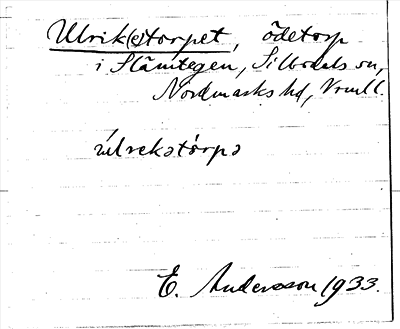 Ulrik(e)torpet, ödetorp
i Slämtegen, Silbodals sn,
Nordmarks hd, Vrml.
úlrekətórpə
E. Andersson 1933.